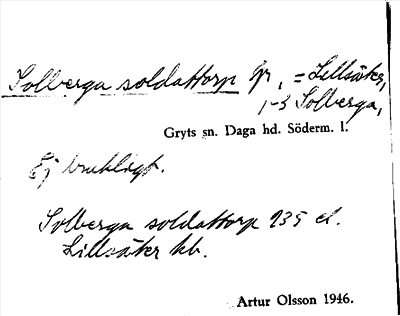 Solberga soldattorp lp, = Lillsäter,
1-3 Solberga,
Gryts sn. Daga hd. Söderm. l.
Ej brukligt.
Solberga soldattorp 235 el.
Lillsäter kb.
Artur Olsson 1946.